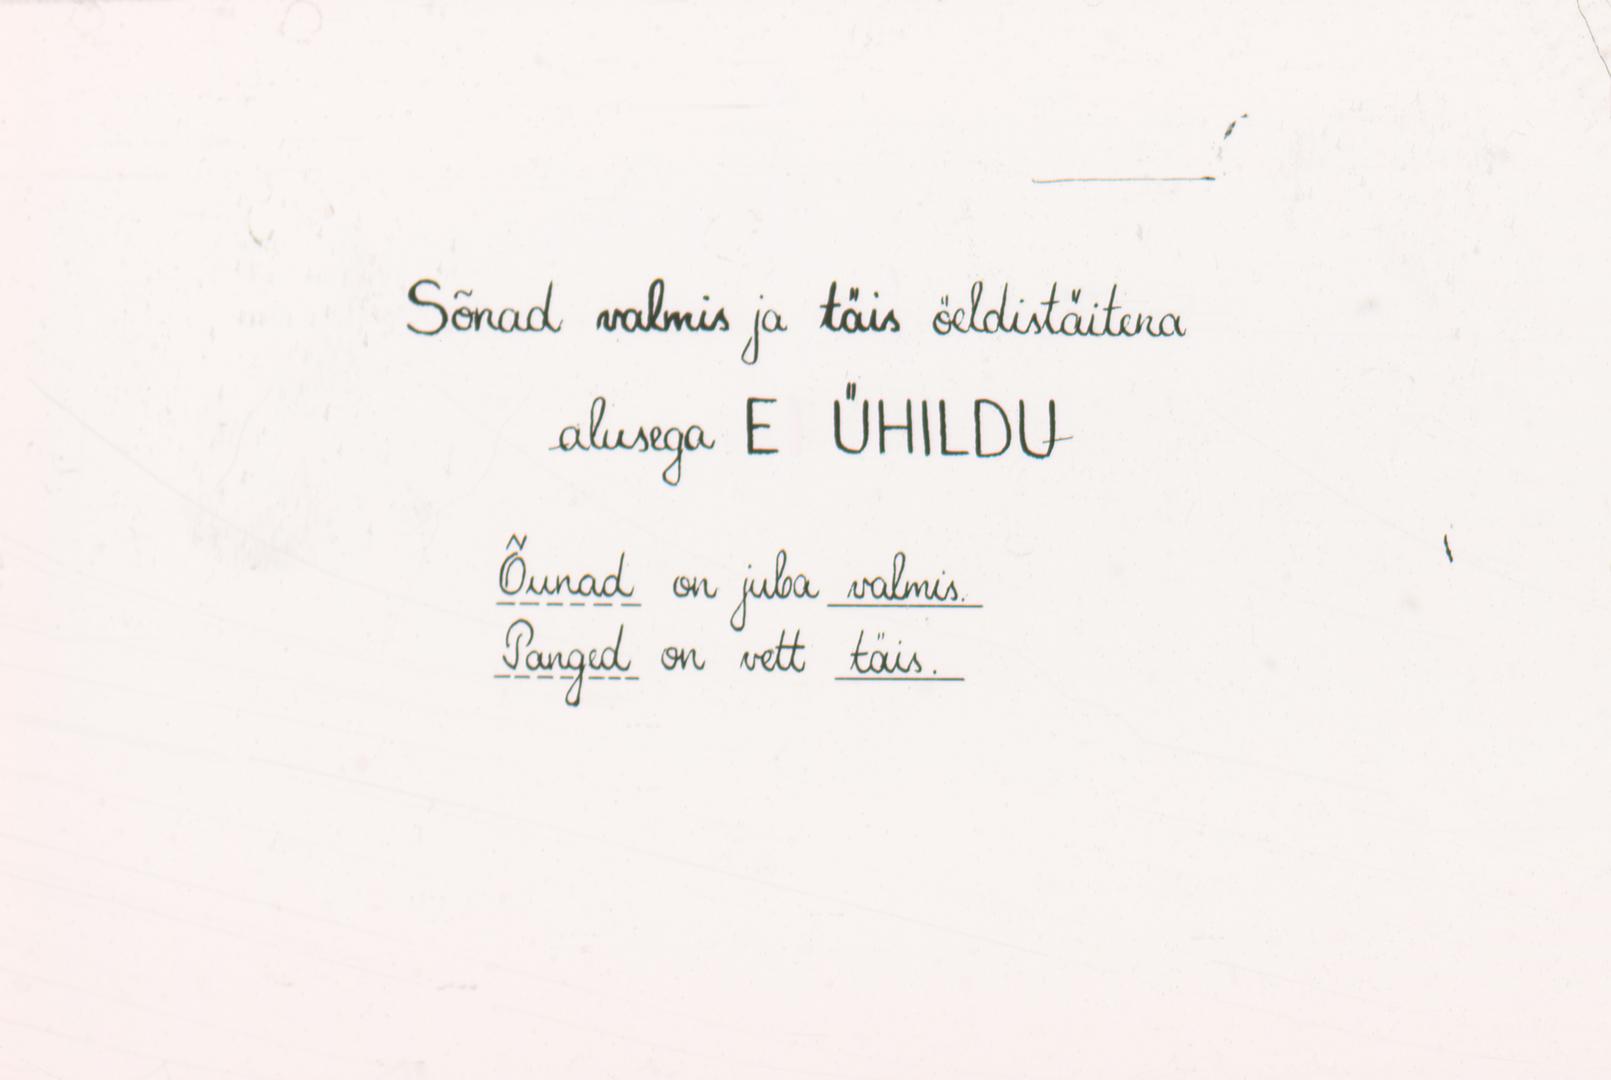 Sõnad valmis ja täis öeldistäitena
alusega E ÜHILDU
Õunad on juba valmis.
Panged on vett täis.